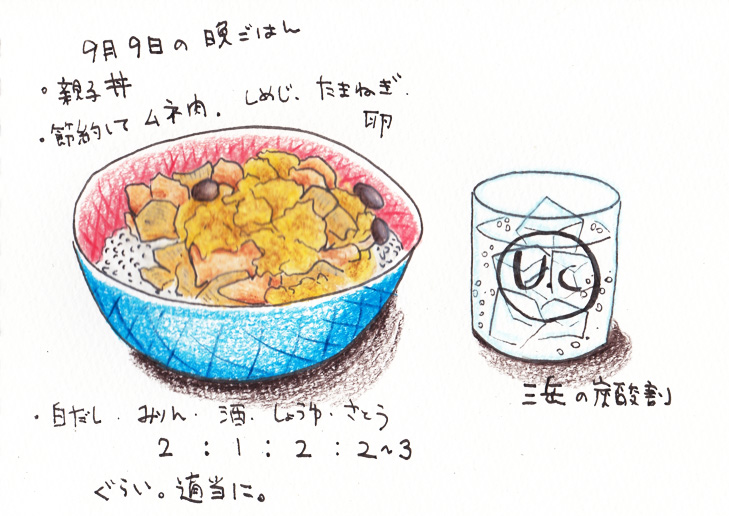 9月9日の晩ごはん
・親子丼
・節約して ムネ肉. しめじ、たまねぎ.
卵
U.C
三岳の炭酸割
・白だし・みりん・酒・しょうゆ・さとう
2 : 1 : 2 : 2〜3
ぐらい。適当に。